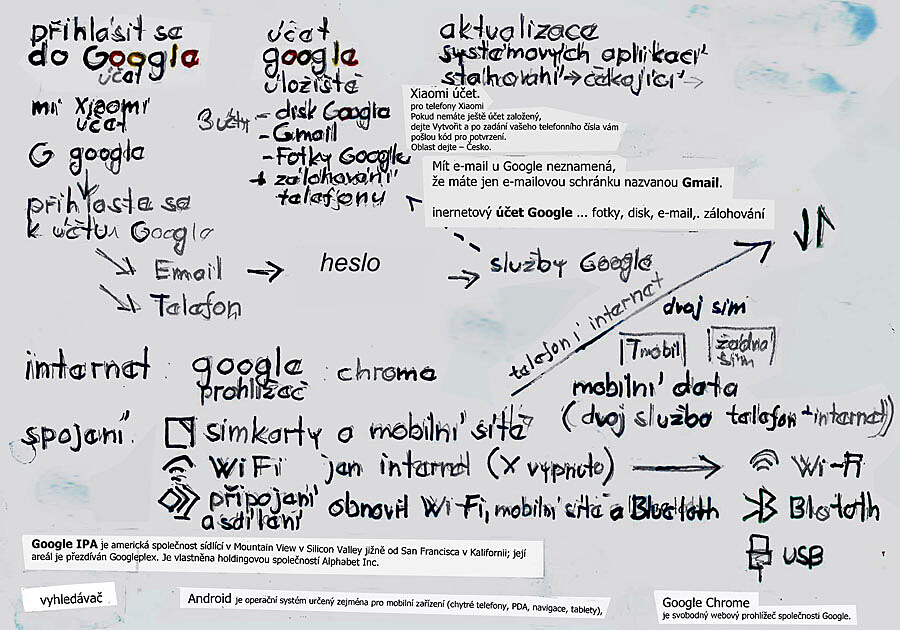 přihlásit se
do Google
účet
mi Xiaomi
účet
G google
přihlaste se
k účtu Google
Email
Telefon
heslo
účet
google
úložiště
3 účty - disk Google
- Gmail
- Fotky Google
+ zálohování
telefonu
aktualizace
systémových aplikací
stahování → čekající →
Xiaomi účet.
pro telefony Xiaomi
Pokud nemáte ještě účet založený,
dejte Vytvořit a po zadání vašeho telefonního čísla vám
pošlou kód pro potvrzení.
Oblast dejte – Česko.
Mít e-mail u Google neznamená,
že máte jen e-mailovou schránku nazvanou Gmail.
inernetový účet Google ... fotky, disk, e-mail,. zálohování
služby Google
telefon i internet
dvoj sim
Tmobil
žádná
sim
mobilní data
(dvoj služba telefon + internet)
internet google chrome
prohlížeč
spojení simkarty a mobilní sítě
WiFi jen internet (x vypnuto) → Wi-Fi
připojení
a sdílení
obnovit WiFi, mobilní sítě a Bluetoth
Blutoth
USB
Google IPA je americká společnost sídlící v Mountain View v Silicon Valley jižně od San Francisca v Kalifornii; její
areál je přezdíván Googleplex. Je vlastněna holdingovou společností Alphabet Inc.
vyhledávač
Android je operační systém určený zejména pro mobilní zařízení (chytré telefony, PDA, navigace, tablety),
Google Chrome
je svobodný webový prohlížeč společnosti Google.